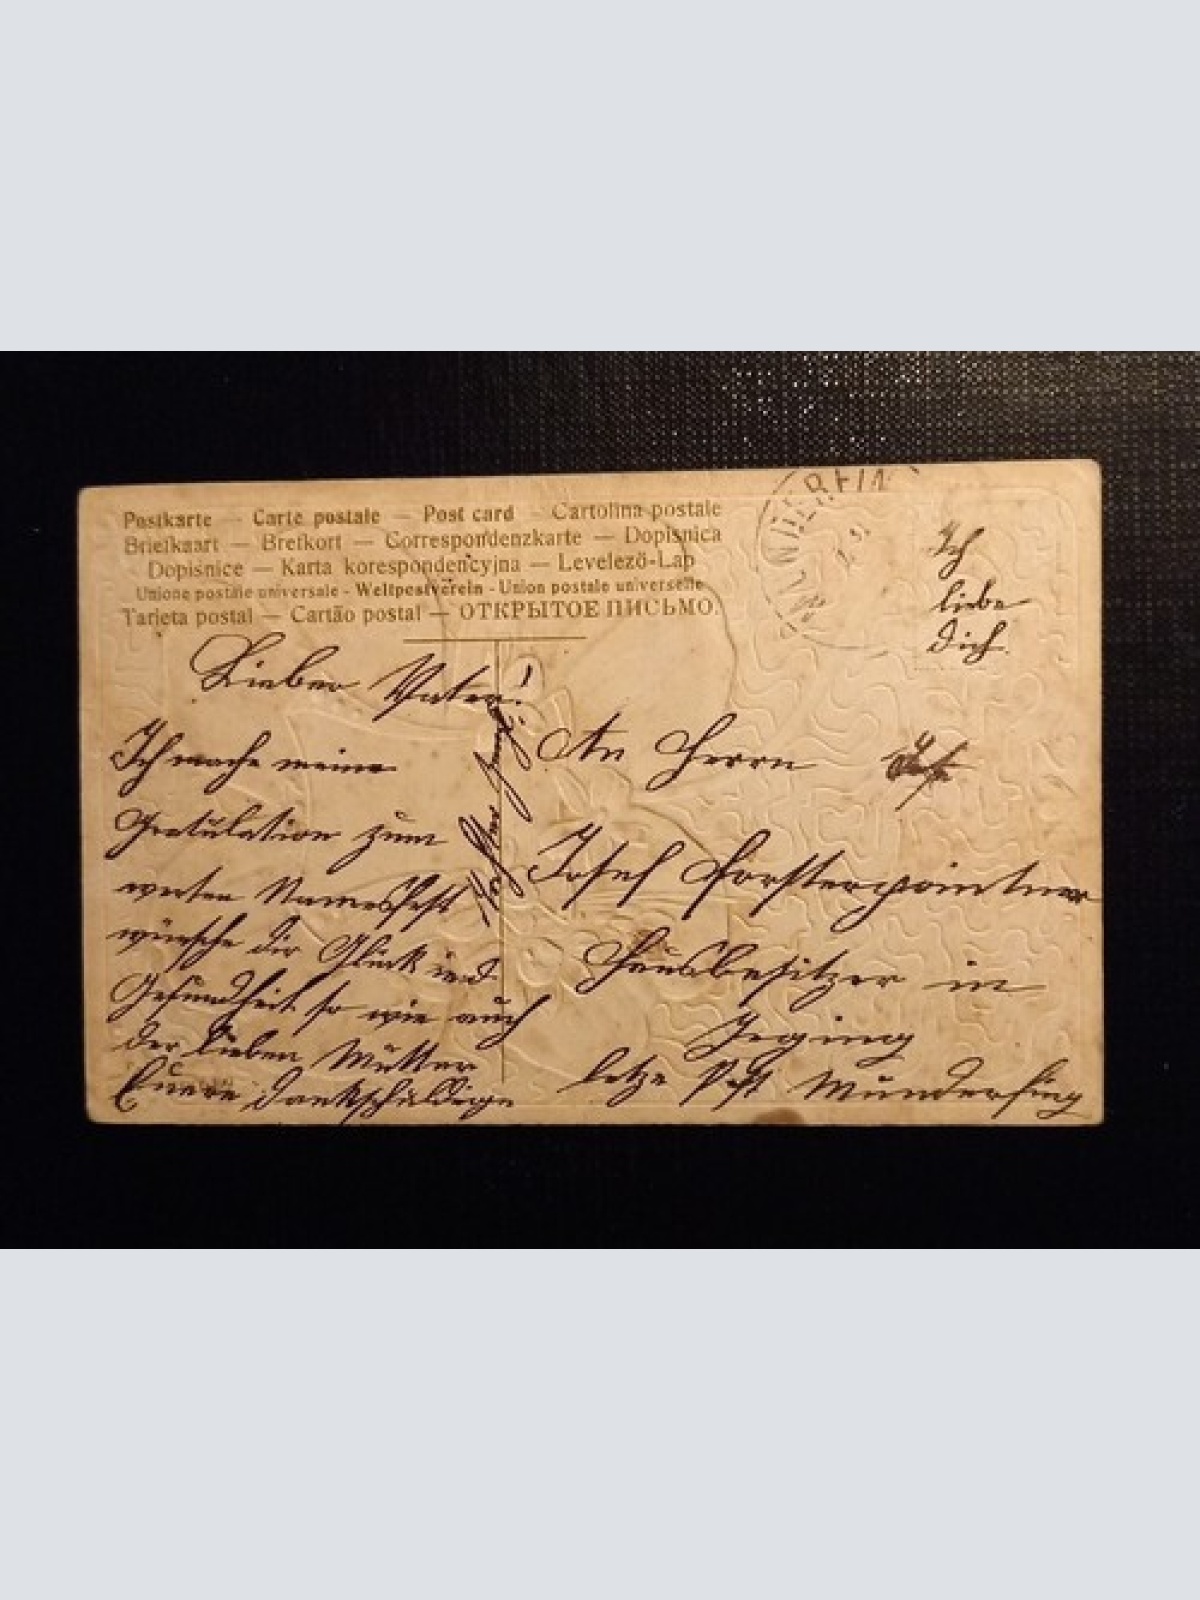 Postkarte — Carte postale — Post card — Cartolina postale
Briefkaart — Brefkort — Correspondenzkarte — Dopisnica
Dopisnice — Karta korespondencyjna — Levelező-Lap
Unione postale universale - Weltpostverein - Union postale universelle
Tarjeta postal — Cartão postal — ОТКРЫТОЕ ПИСЬМО.
MUNDERFIN
Ich
liebe
dich
Lieber Vater!
Ich mache meine
Gratulation zum
werten Namesfest
wünsche dir Glück und
Gesundheit so wie auch
der lieben Mutter
Euere dankschuldige
An Herrn
Josef Forsterpointner
Hausbesitzer in
Jeging
letze Post Munderfing